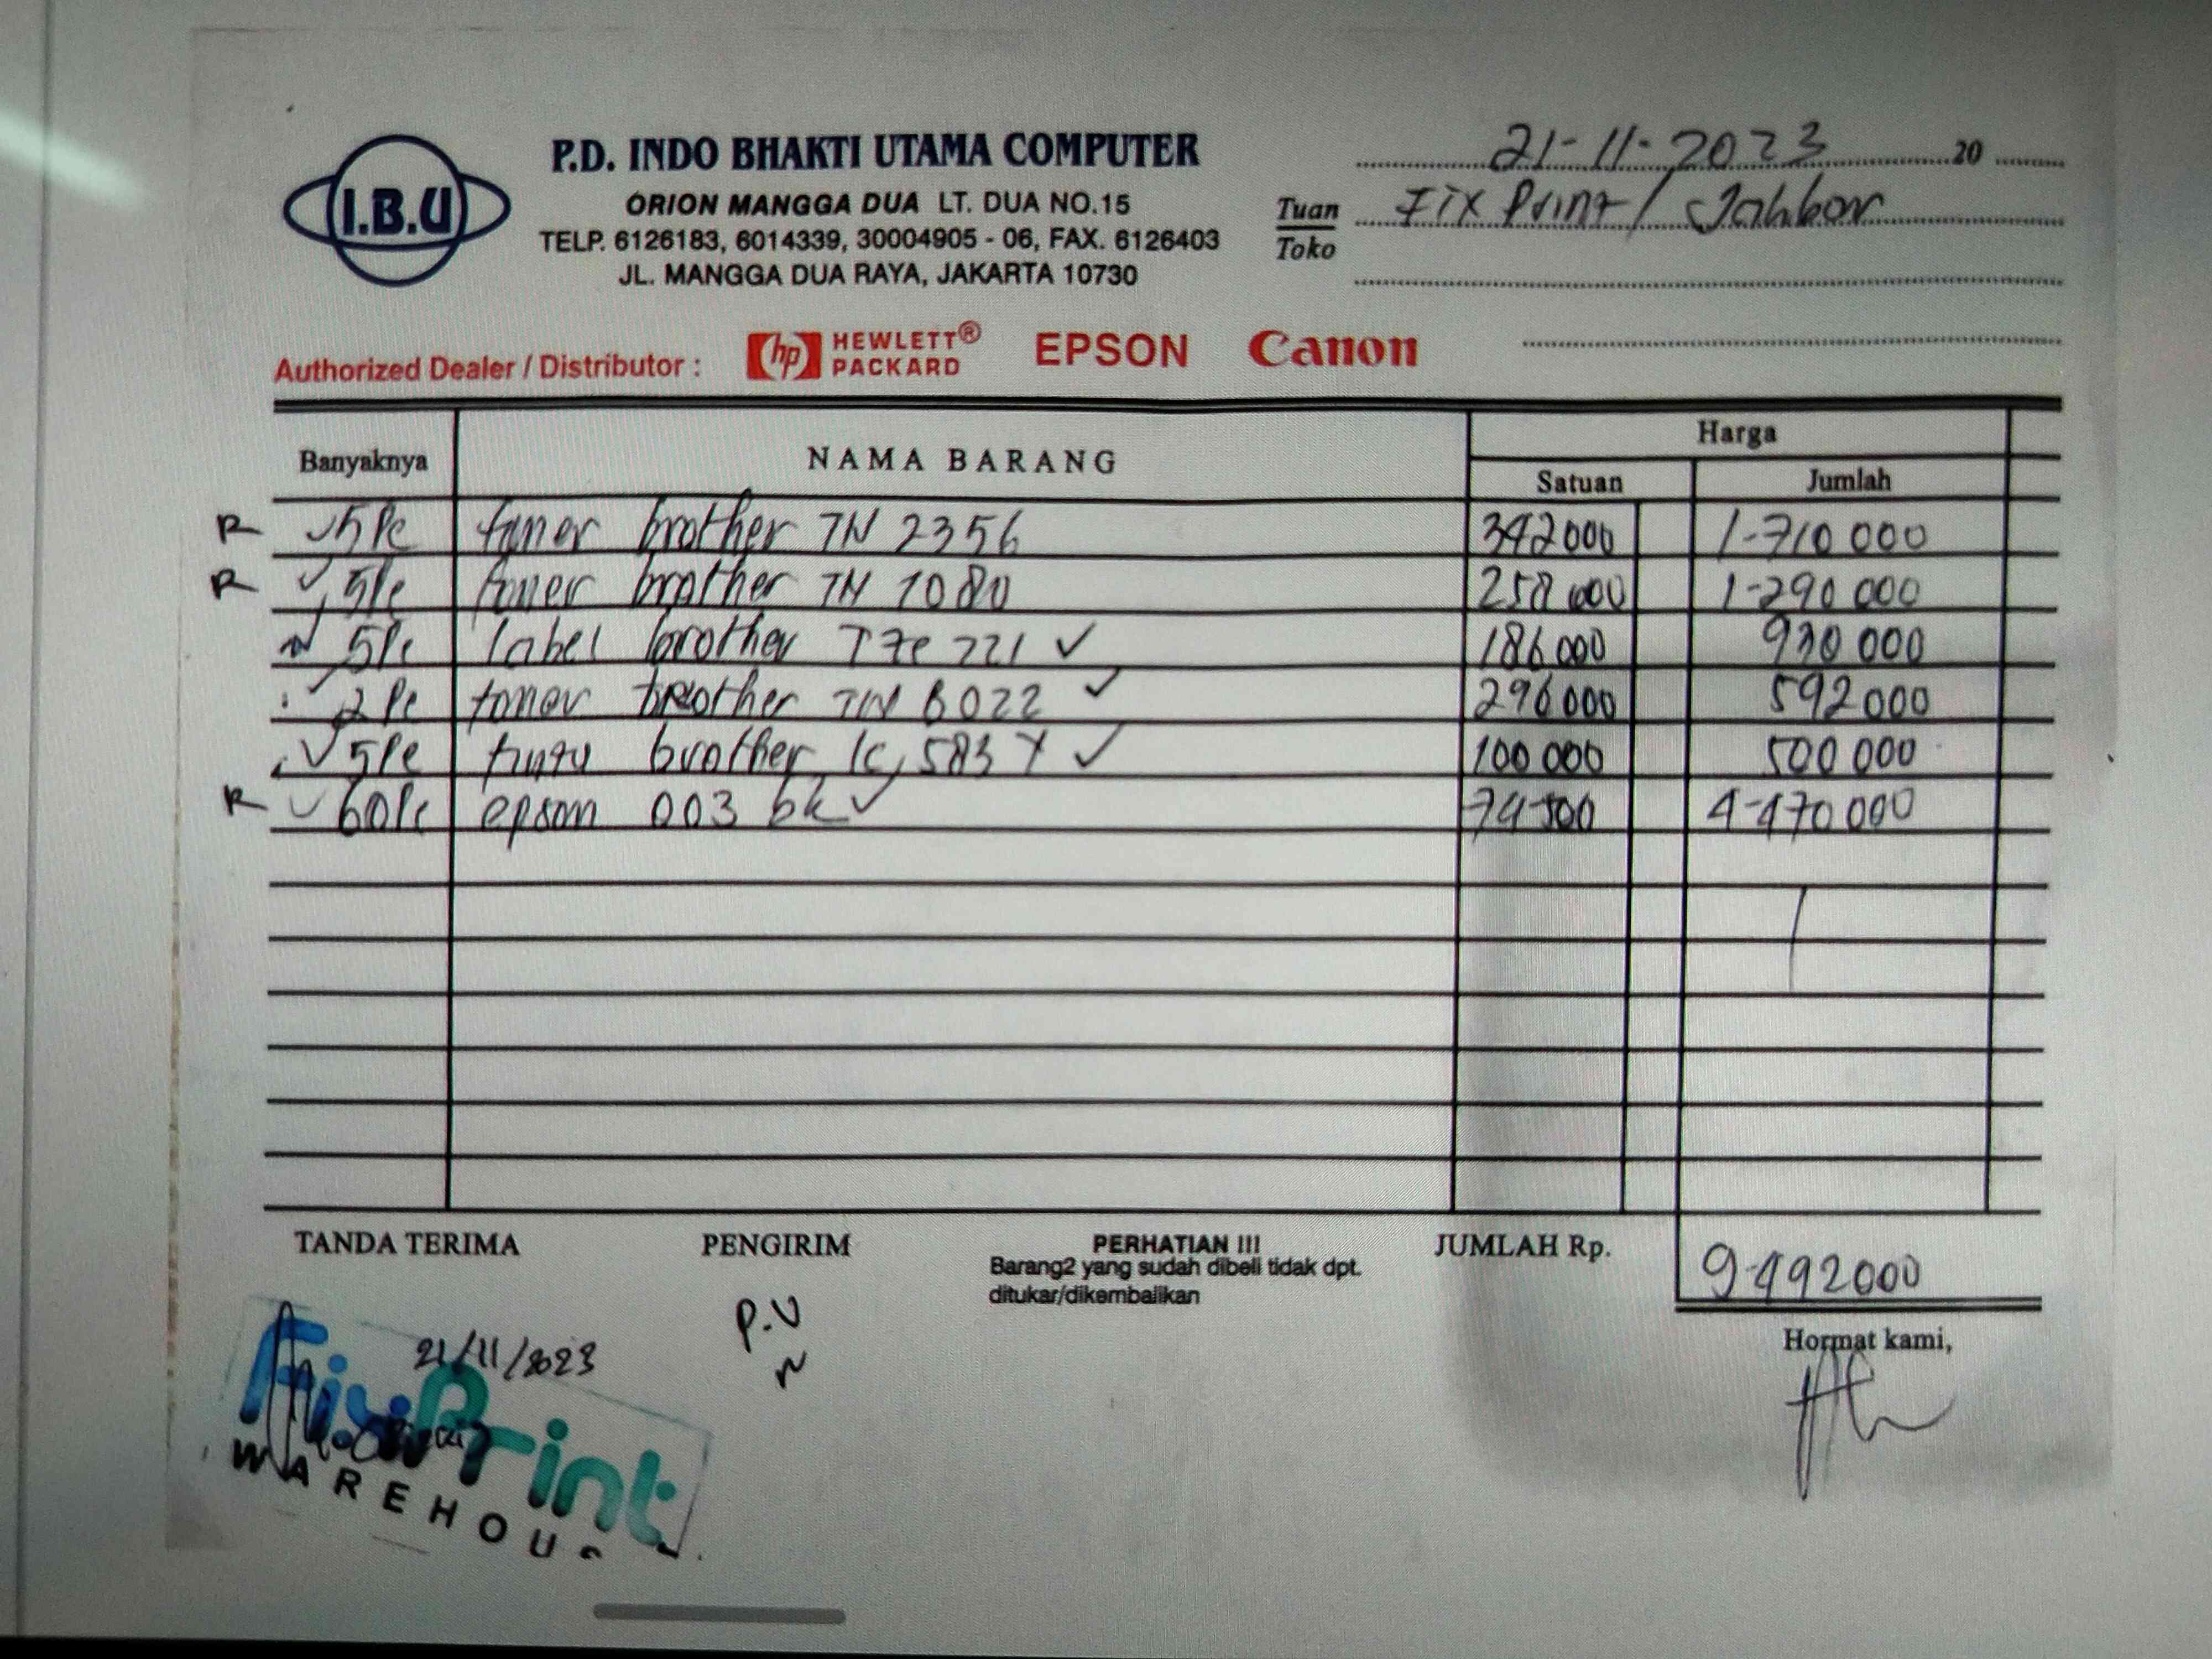 I.B.U
P.D. INDO BHAKTI UTAMA COMPUTER
ORION MANGGA DUA LT. DUA NO.15
TELP. 6126183, 6014339, 30004905 - 06, FAX. 6126403
JL. MANGGA DUA RAYA, JAKARTA 10730
21-11-2023 20
Tuan Fix Print /
Toko
Authorized Dealer / Distributor : hp HEWLETT® PACKARD EPSON Canon
Banyaknya NAMA BARANG Harga
Satuan Jumlah
R 5 Pc toner brother TN 2356 342 000 1-710 000
R 5 Pc toner brother TN 1080 258 000 1-290 000
5 Pc label brother Tze 221 186 000 930 000
2 Pc toner brother TN B022 296 000 592 000
5 Pc brother 100 000 500 000
R 60 Pc epson 003 bk 74-500 4-470 000
TANDA TERIMA PENGIRIM PERHATIAN !!! JUMLAH Rp. 9-492000
Barang2 yang sudah dibeli tidak dpt.
ditukar/dikembalikan
P.U
Hormat kami,
21/11/2023
FixPrint